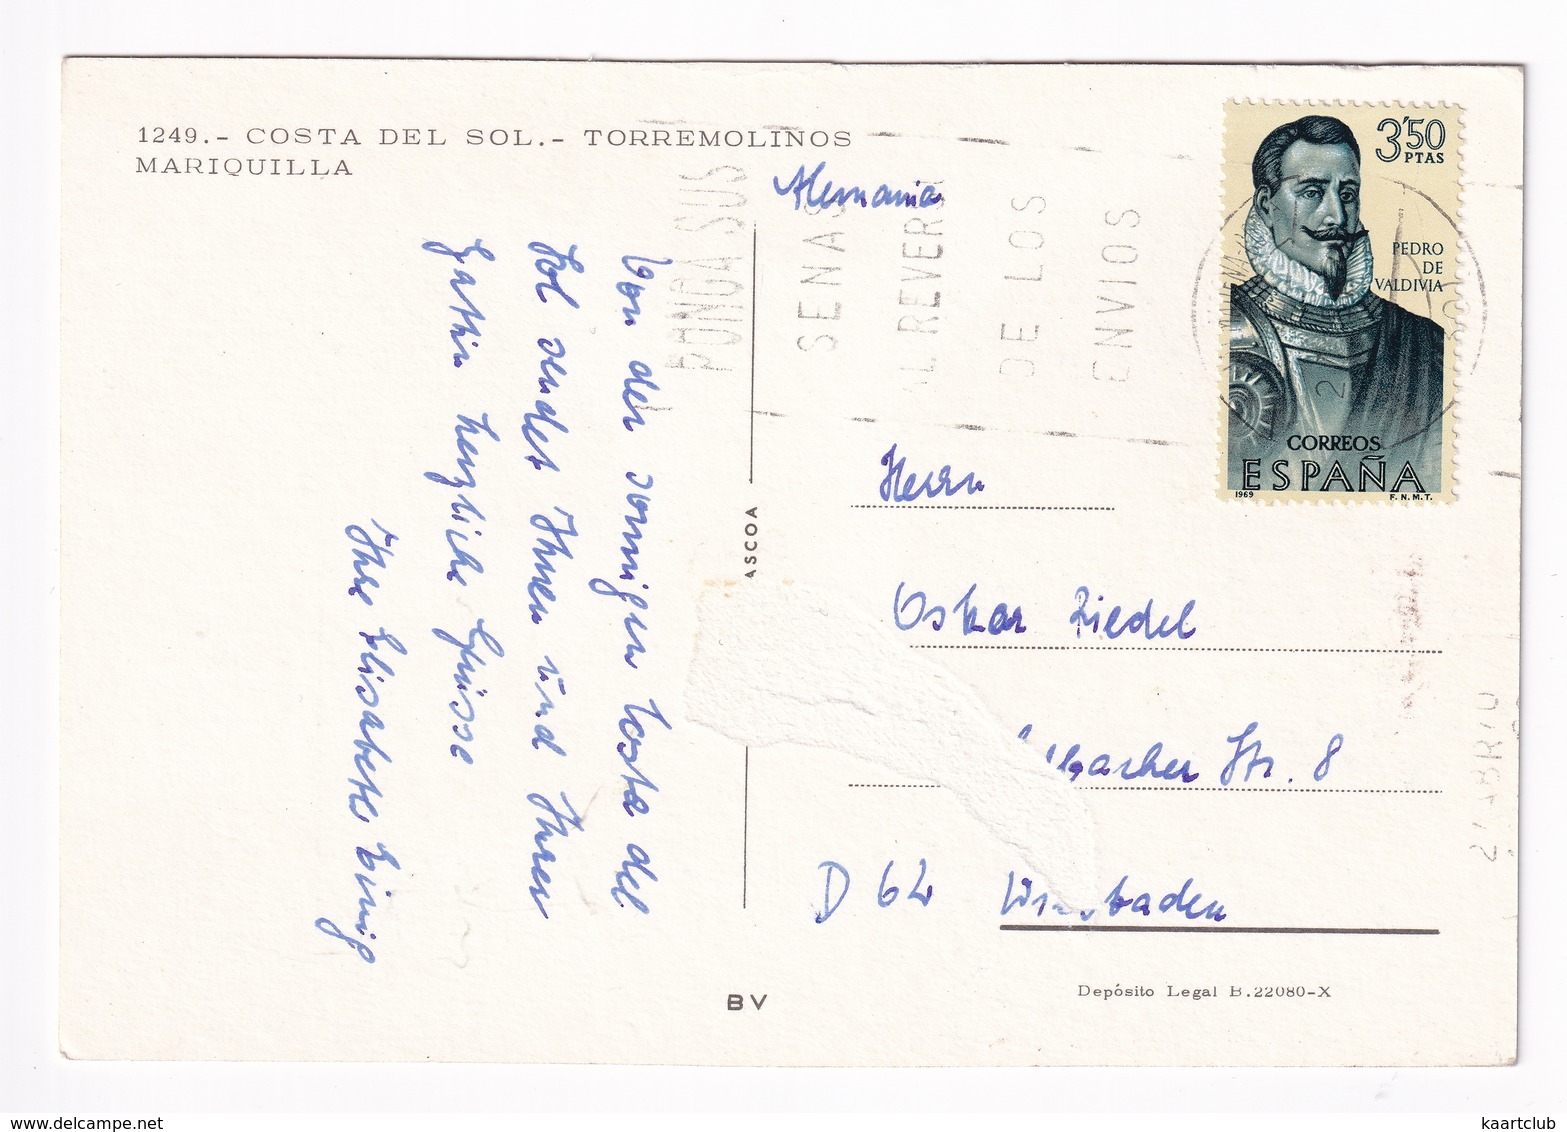 1249.- COSTA DEL SOL.- TORREMOLINOS
MARIQUILLA
Alemania
PONGA SUS
SENAS
AL REVERSO
DE LOS
ENVIOS
3'50
PTAS
PEDRO
DE
VALDIVIA
CORREOS
ESPAÑA
1969
F.N.M.T.
Von der sonnigen Costa del
Sol sendet Ihnen und Ihrer
Gattin herzliche Grüsse
Ihre Elisabeth
ASCOA
Herrn
Oskar Riedel
bacher Str. 8
D 62 Wiesbaden
BV
Depósito Legal B.22080-X
www.delcampe.net
kaartclub